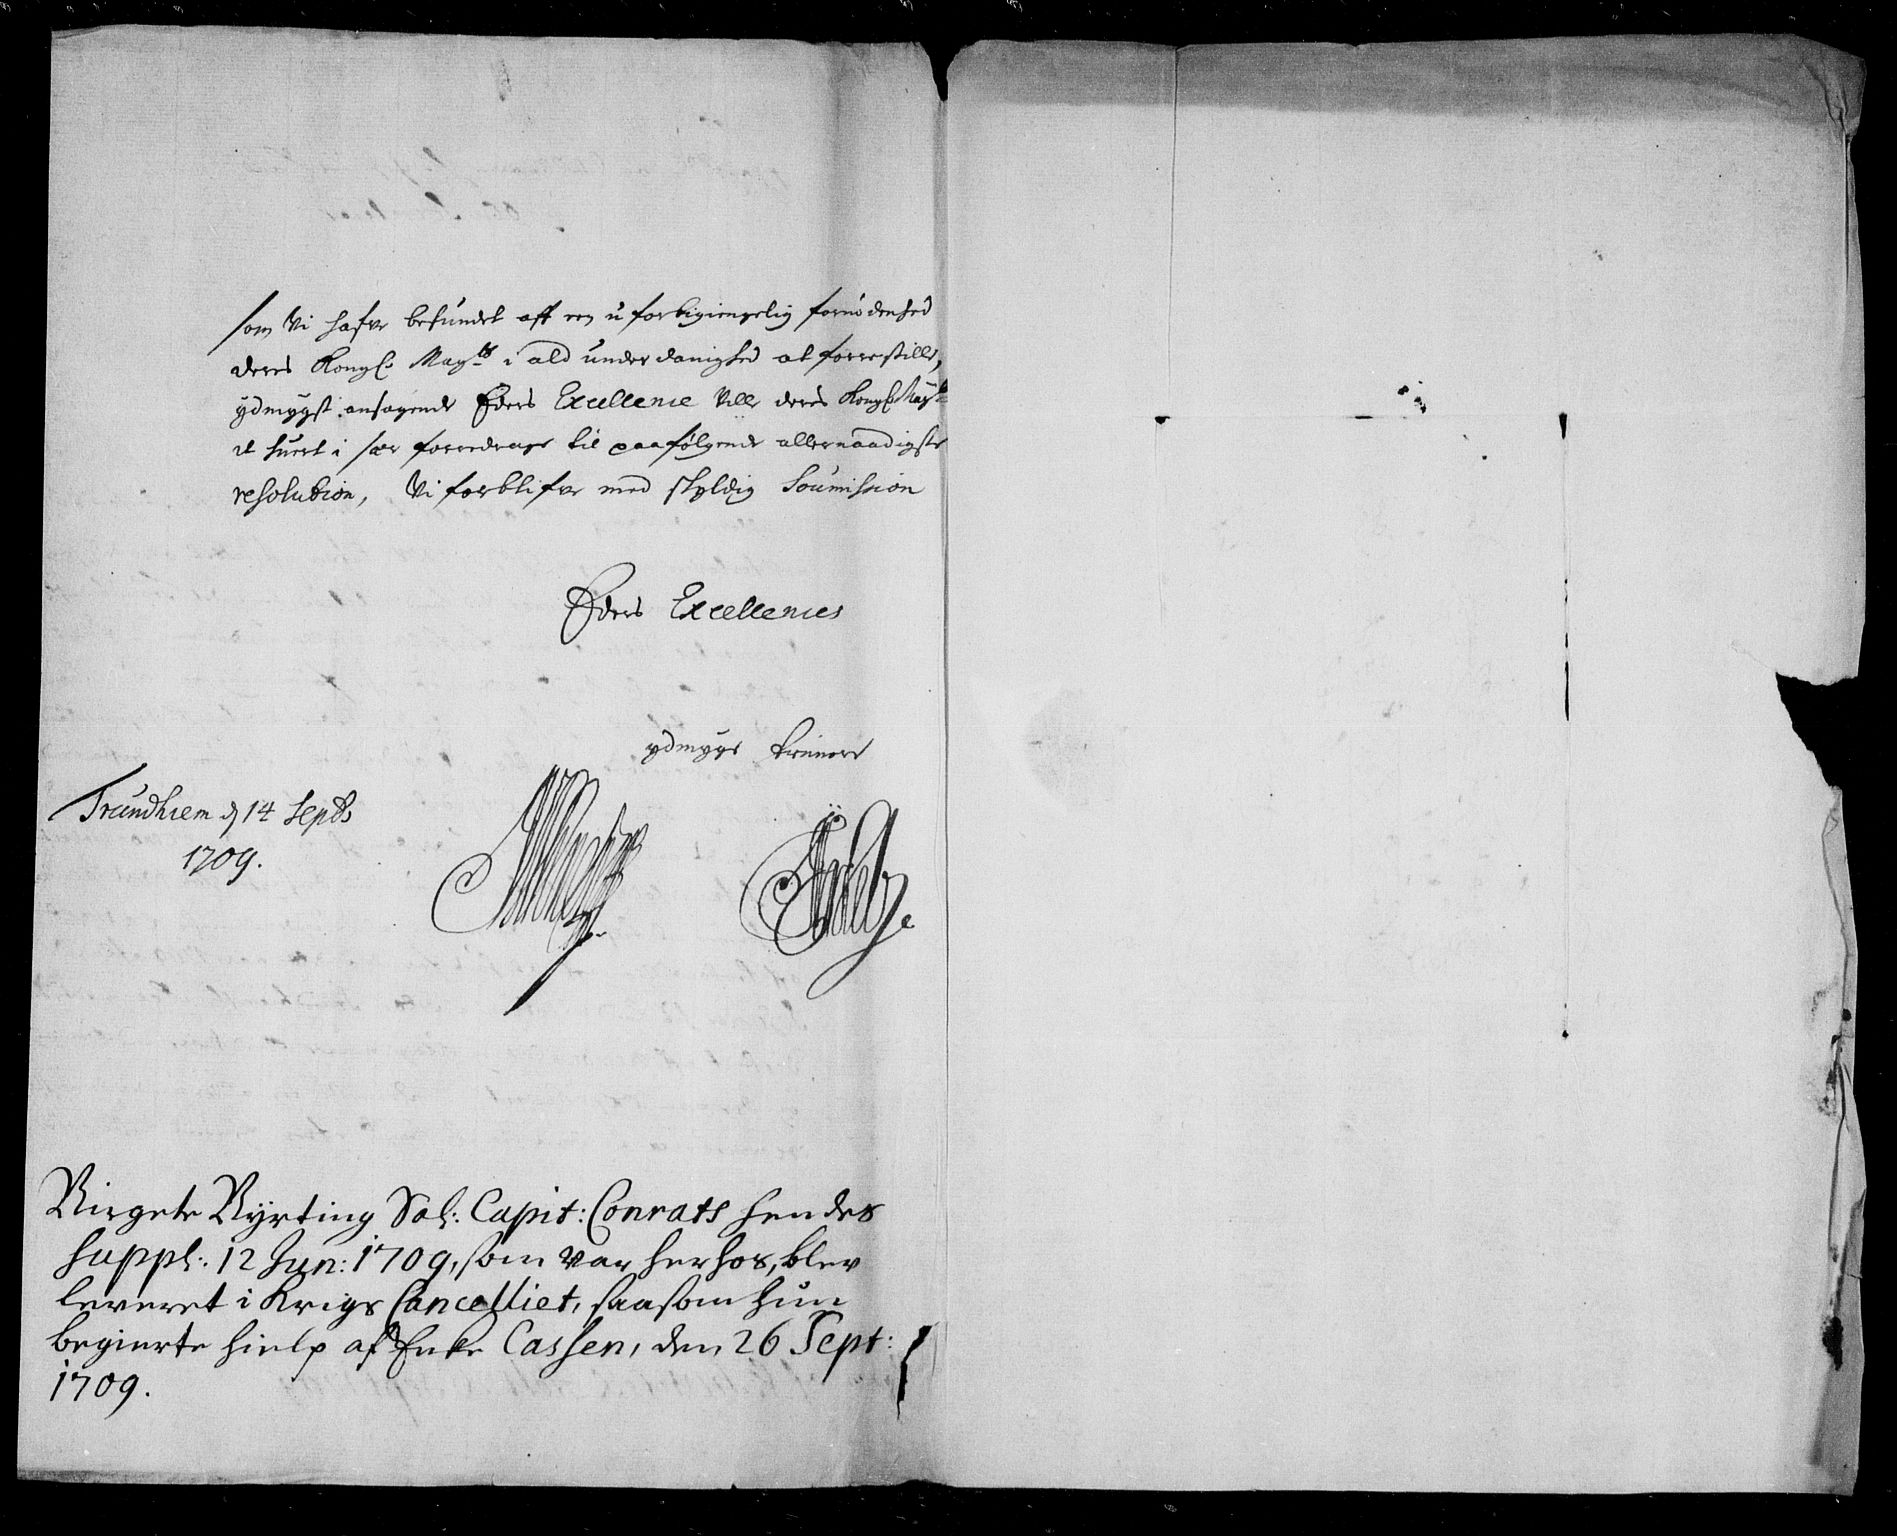 som Vi hafve befundet aff een uforbigiengelig fornødenhed
deres Kongl: May.ts i ald underdanighed at forrestille,
ydmygst ansøgende Eders Excellence Ville deres Kongl: May.t
et huert i sær forredrage til paafølgende allernaadigste
resolution, Vi forblifve med skyldig Soumission
Eders Excellences
ydmyge tiennere
Trundhiem d 14 Septb
1709.
Birgete Byrting Sal: Capit: Conrats hendes
suppl: 12 Jun: 1709, som var herhos, blev
leveret i Krigs Cancelliet, saasom hun
begierte hielp af Enke Cassen, den 26 Sept:
1709.